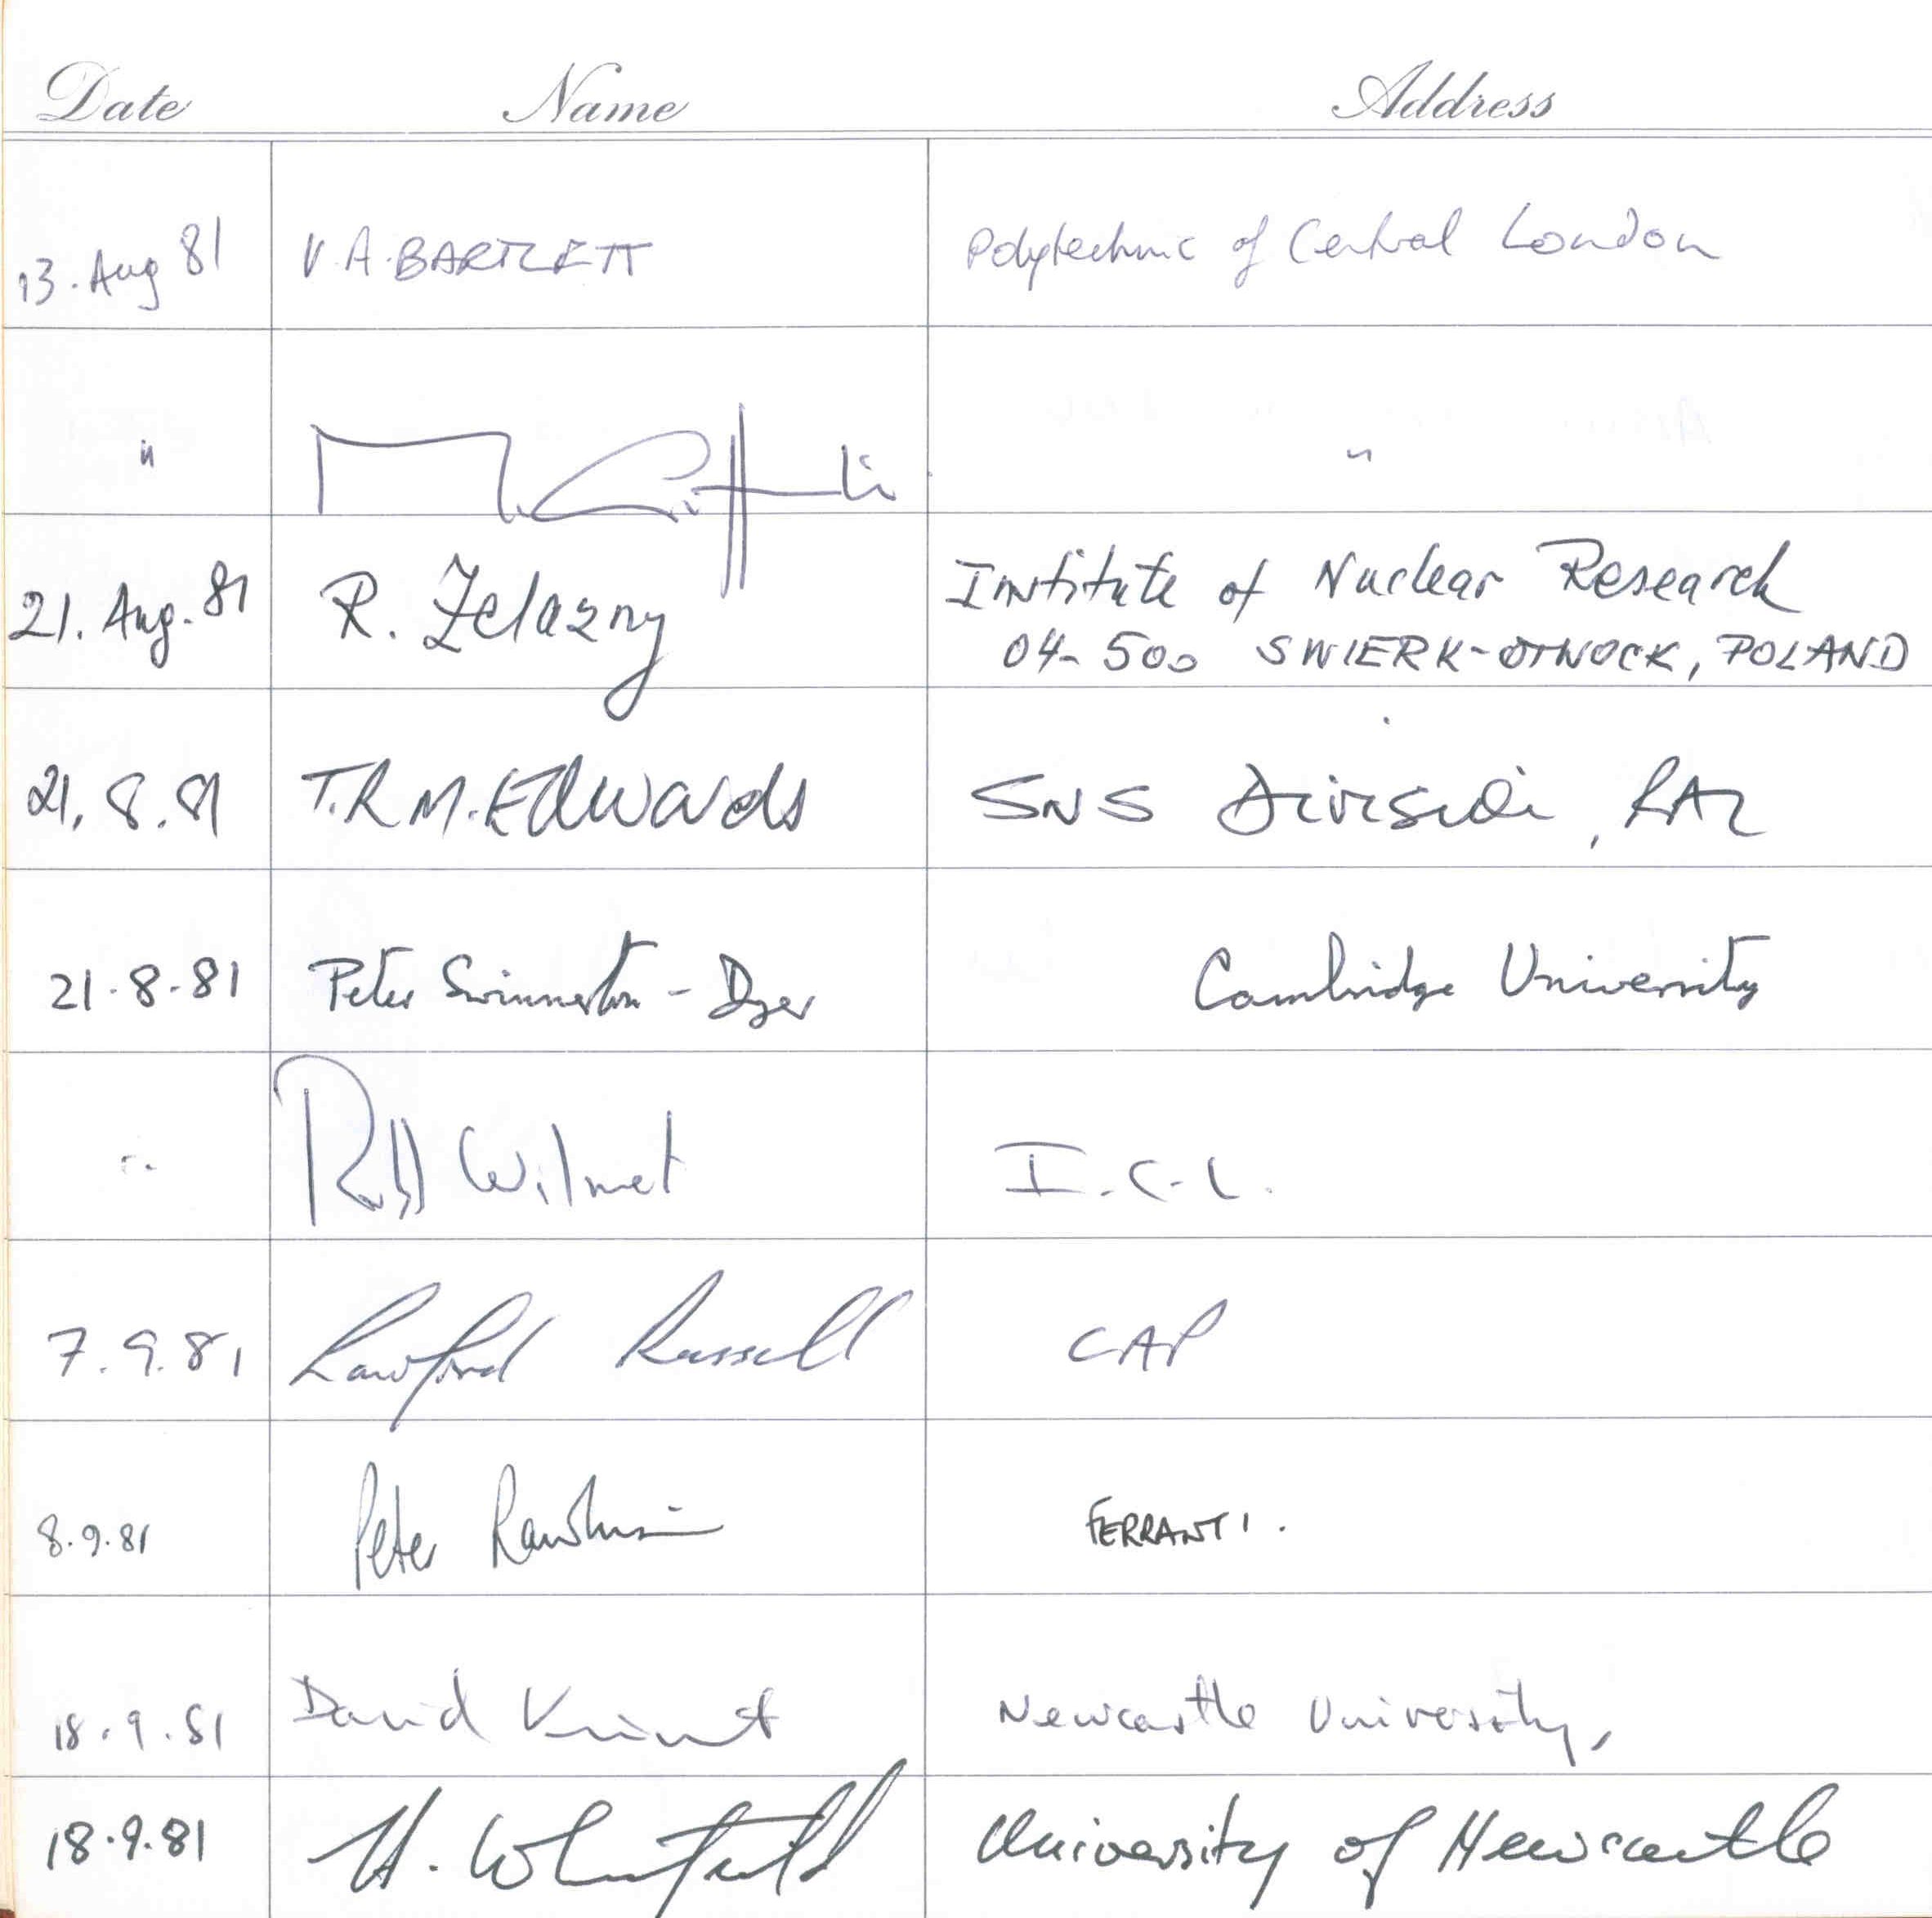 Date Name Address
13. Aug 81 V.A. BARTLETT Polytechnic of Central London
" "
21. Aug. 81 R. Zelazny Institute of Nuclear Research
04-500 SWIERK-OTWOCK, POLAND
21.8.81 T.R.M. Edwards SNS Division, RAL
21.8.81 Peter Swinnerton-Dyer Cambridge University
" Wilmot I.C.L.
7.9.81 Lawford Russell CAP
8.9.81 Peter FERRANTI.
18.9.81 David Newcastle University,
18.9.81 H. Whitfield University of Newcastle